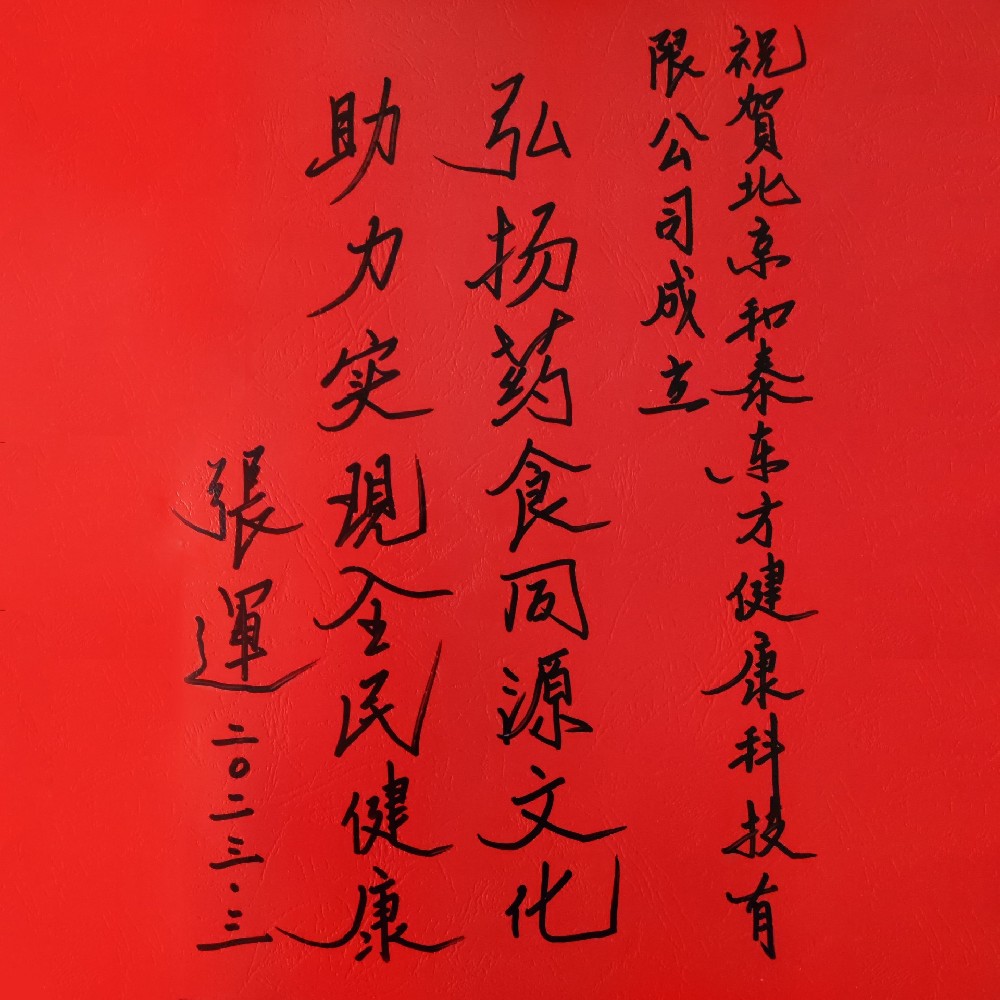 祝賀北京和泰东方健康科技有
限公司成立
弘扬药食同源文化
助力实現全民健康
張運
二〇二三·三